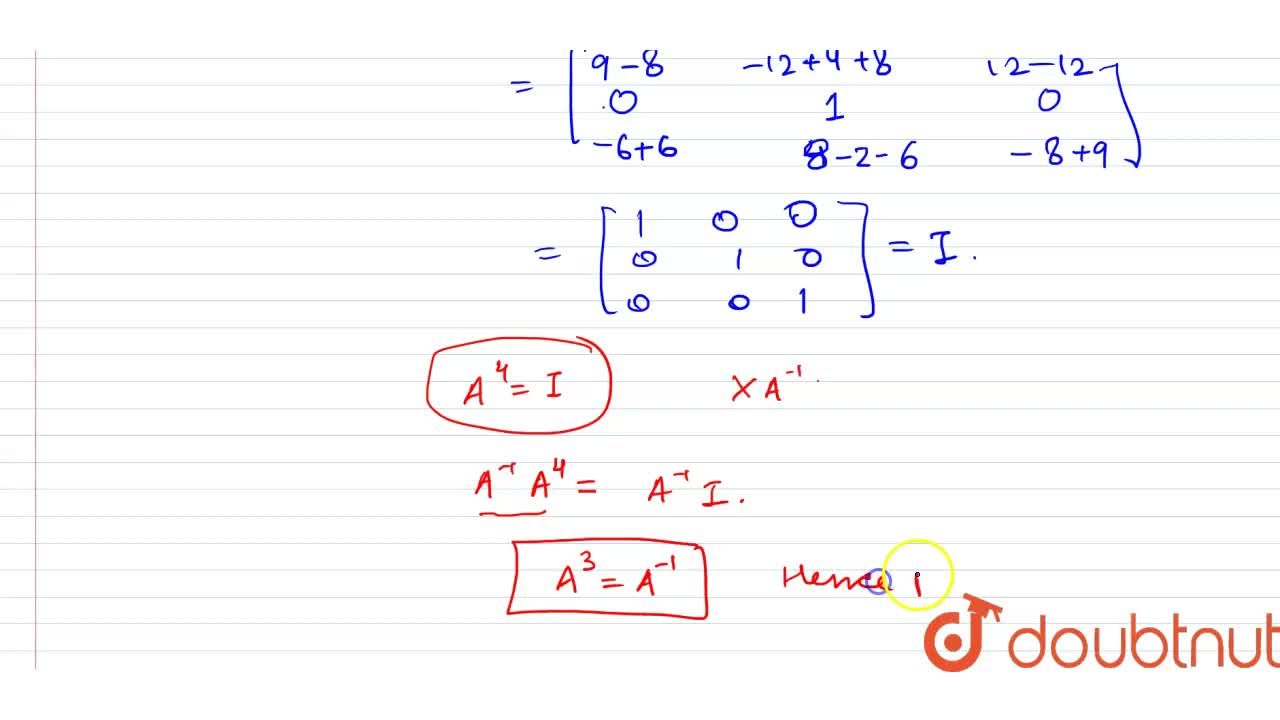 = [ 9 - 8   -12 + 4 + 8   12 - 12
0   1   0
-6 + 6   8 - 2 - 6   -8 + 9 ]
= [ 1 0 0
0 1 0
0 0 1 ] = I.
A⁴ = I   × A⁻¹
A⁻¹ A⁴ = A⁻¹ I.
A³ = A⁻¹   Hence
doubtnut